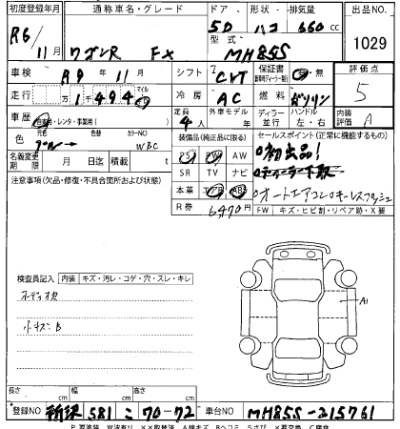 初度登録年月 通称車名・グレード ドア 形状 排気量 出品NO.
R6/11月 ワゴンR FX 5D ハコ 660cc 1029
型式 MH85S
車検 R9年11月 シフト CVT 保証書 有・無 評価点
走行 1千494 マイル 冷房 AC 燃料 ガソリン 5
車歴 自家用・レンタ・事業用 定員 4人 外車モデル ディーラー 並行 ハンドル 左・右 内装評価 A
色 元色 色 カラーNO ブルー WBC
装備品(純正品に限る) セールスポイント(正常に機能するもの)
名義変更期限 月 日迄 積載 t
PS PW AW 初出品!
SR TV ナビ
注意事項(欠品・修復・不具合箇所および状態)
本革 エアB ABS オートエアコン キーレスプッシュ
R券 6970円 FW キズ・ヒビ割・リペア跡・X要
検査員記入 内装 キズ・汚レ・コゲ・穴・スレ・キレ
オーディオ欠
小キズ B
A1
長さ cm 幅 cm 高さ cm
登録NO 新潟 581 こ 70-72 車台NO MH85S-215761